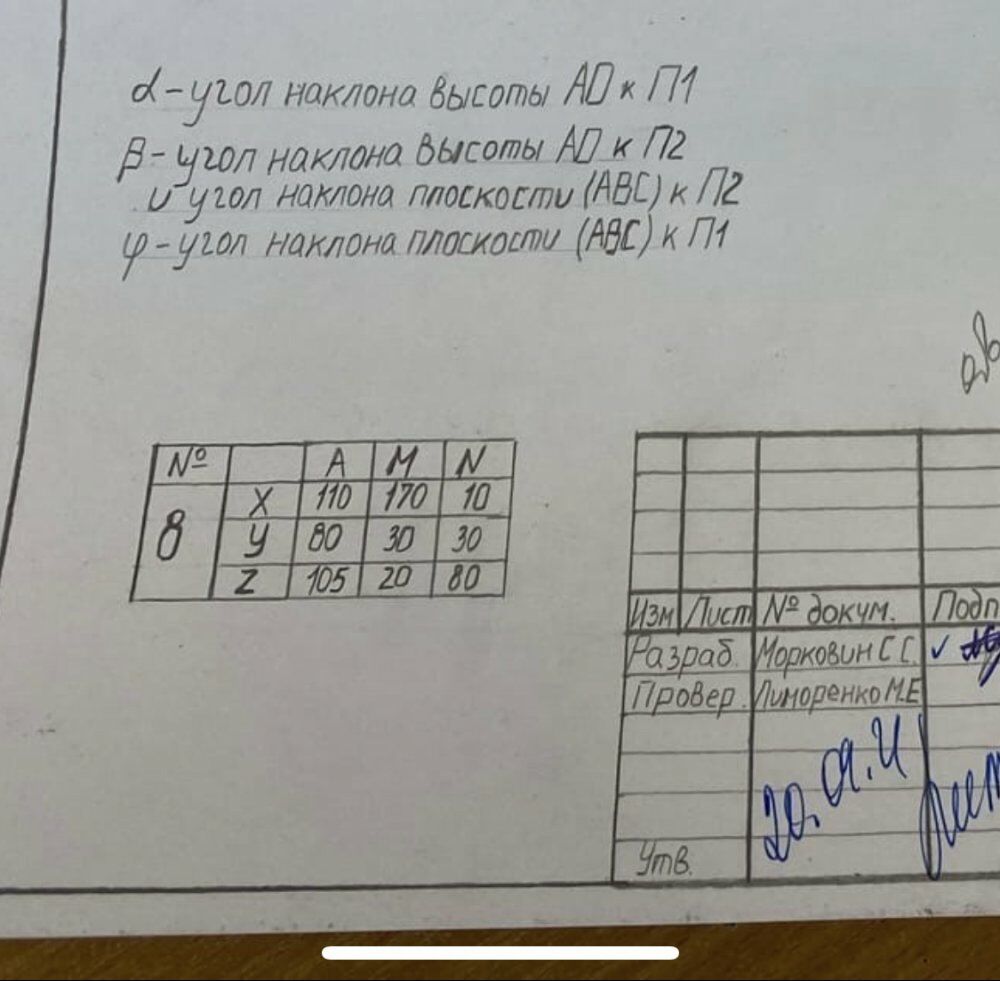 α - угол наклона высоты AD к П1
β - угол наклона высоты AD к П2
υ угол наклона плоскости (ABC) к П2
φ - угол наклона плоскости (ABC) к П1
№ A M N
8
X 110 170 10
y 80 30 30
Z 105 20 80
Изм Лист № докум. Подп
Разраб. Морковин С С.
Провер. Лиморенко М.Е
20.
Утв.